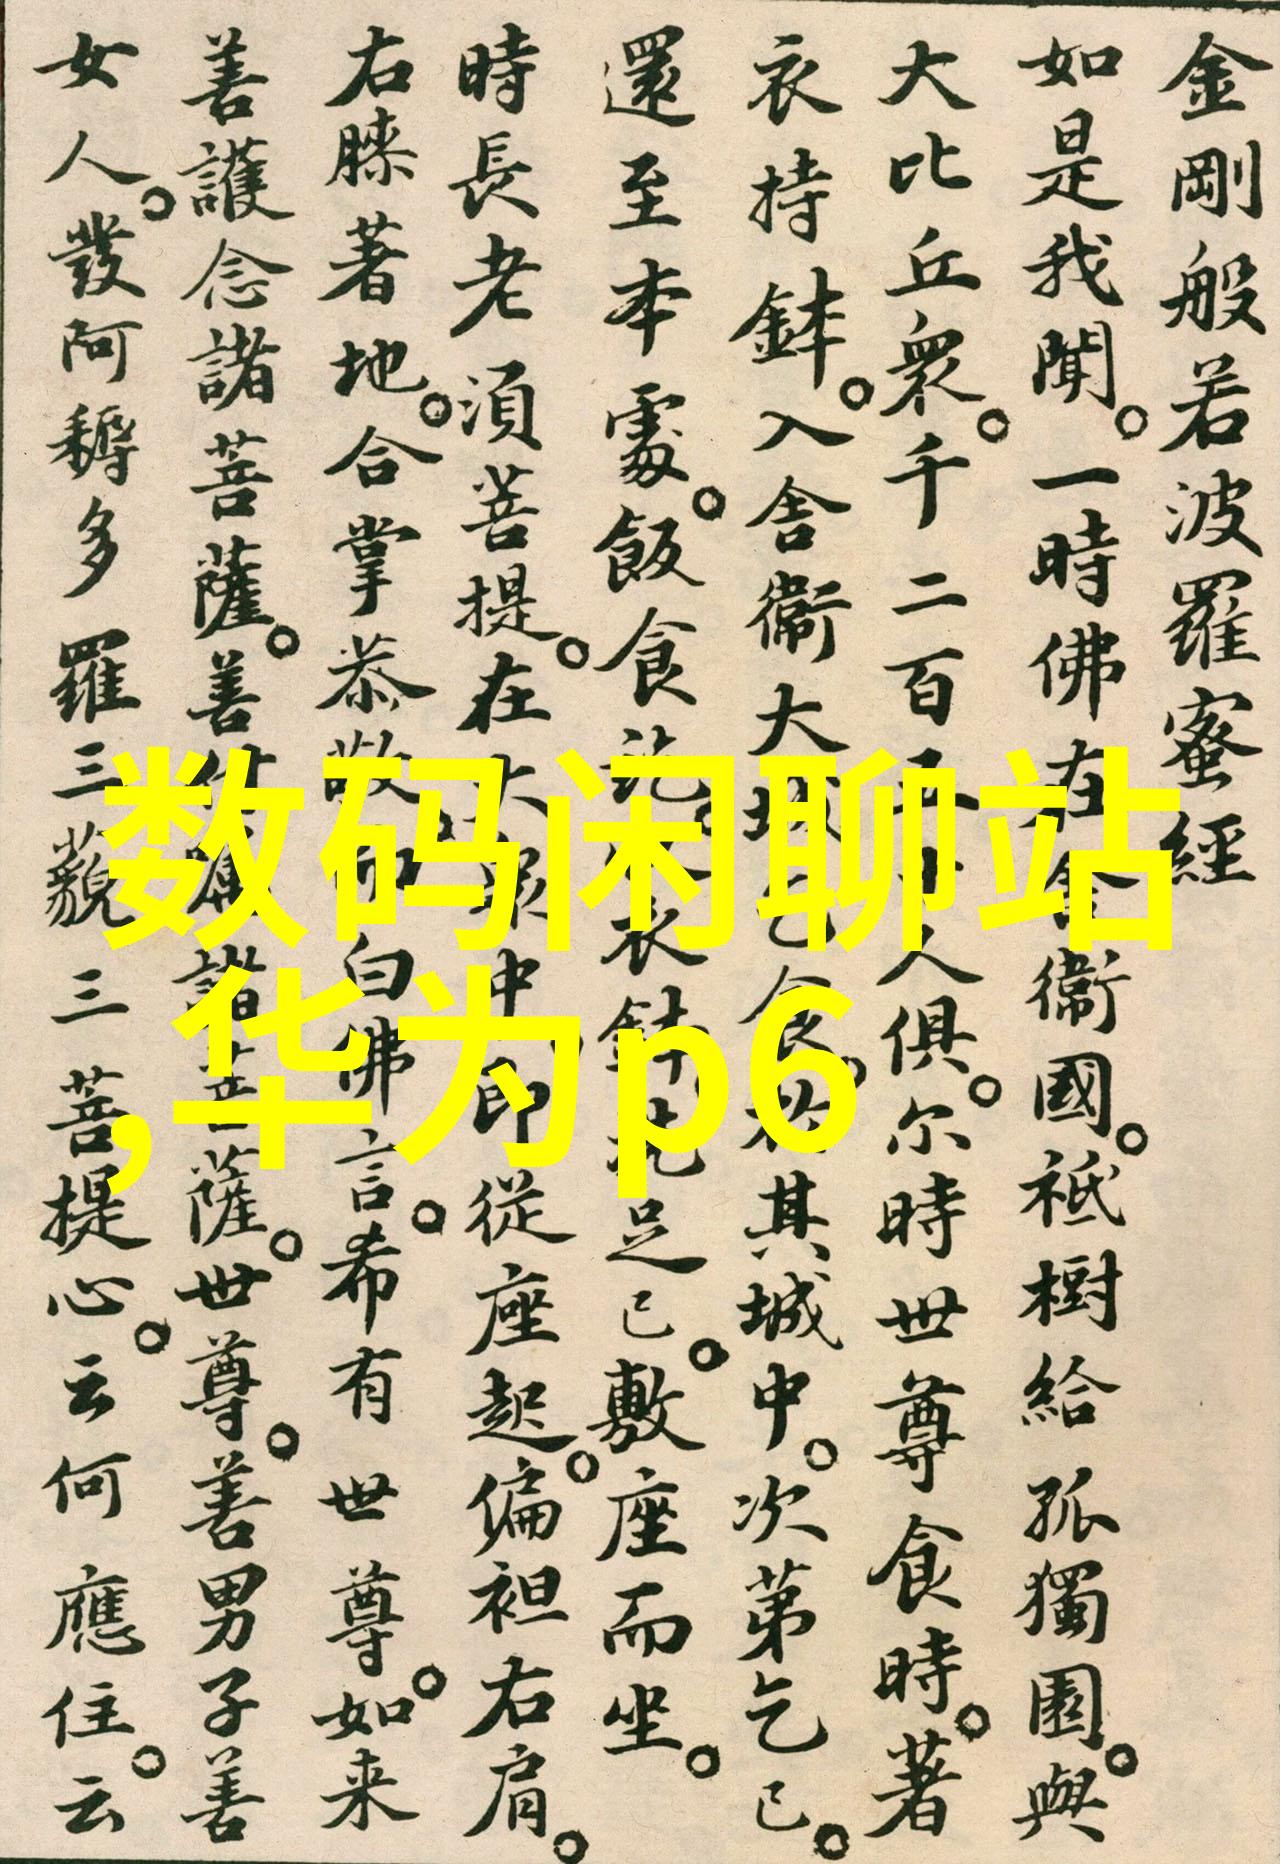 金剛般若波羅蜜經
如是我聞。一時佛在舍衞國。祗樹給孤獨園。與
大比丘衆。千二百五十人俱。尔時世尊食時。著
衣持鉢。入舍衞大城乞食。於其城中。次第乞已。
還至本處。飯食訖。收衣鉢洗足已。敷座而坐。
時長老須菩提。在大衆中。即從座起。偏袒右肩。
右膝著地。合掌恭敬。而白佛言。希有世尊。如来
善護念諸菩薩。善付囑諸菩薩。世尊。善男子善
女人。發阿耨多羅三藐三菩提心。云何應住。云
数码闲聊站
,华为p6